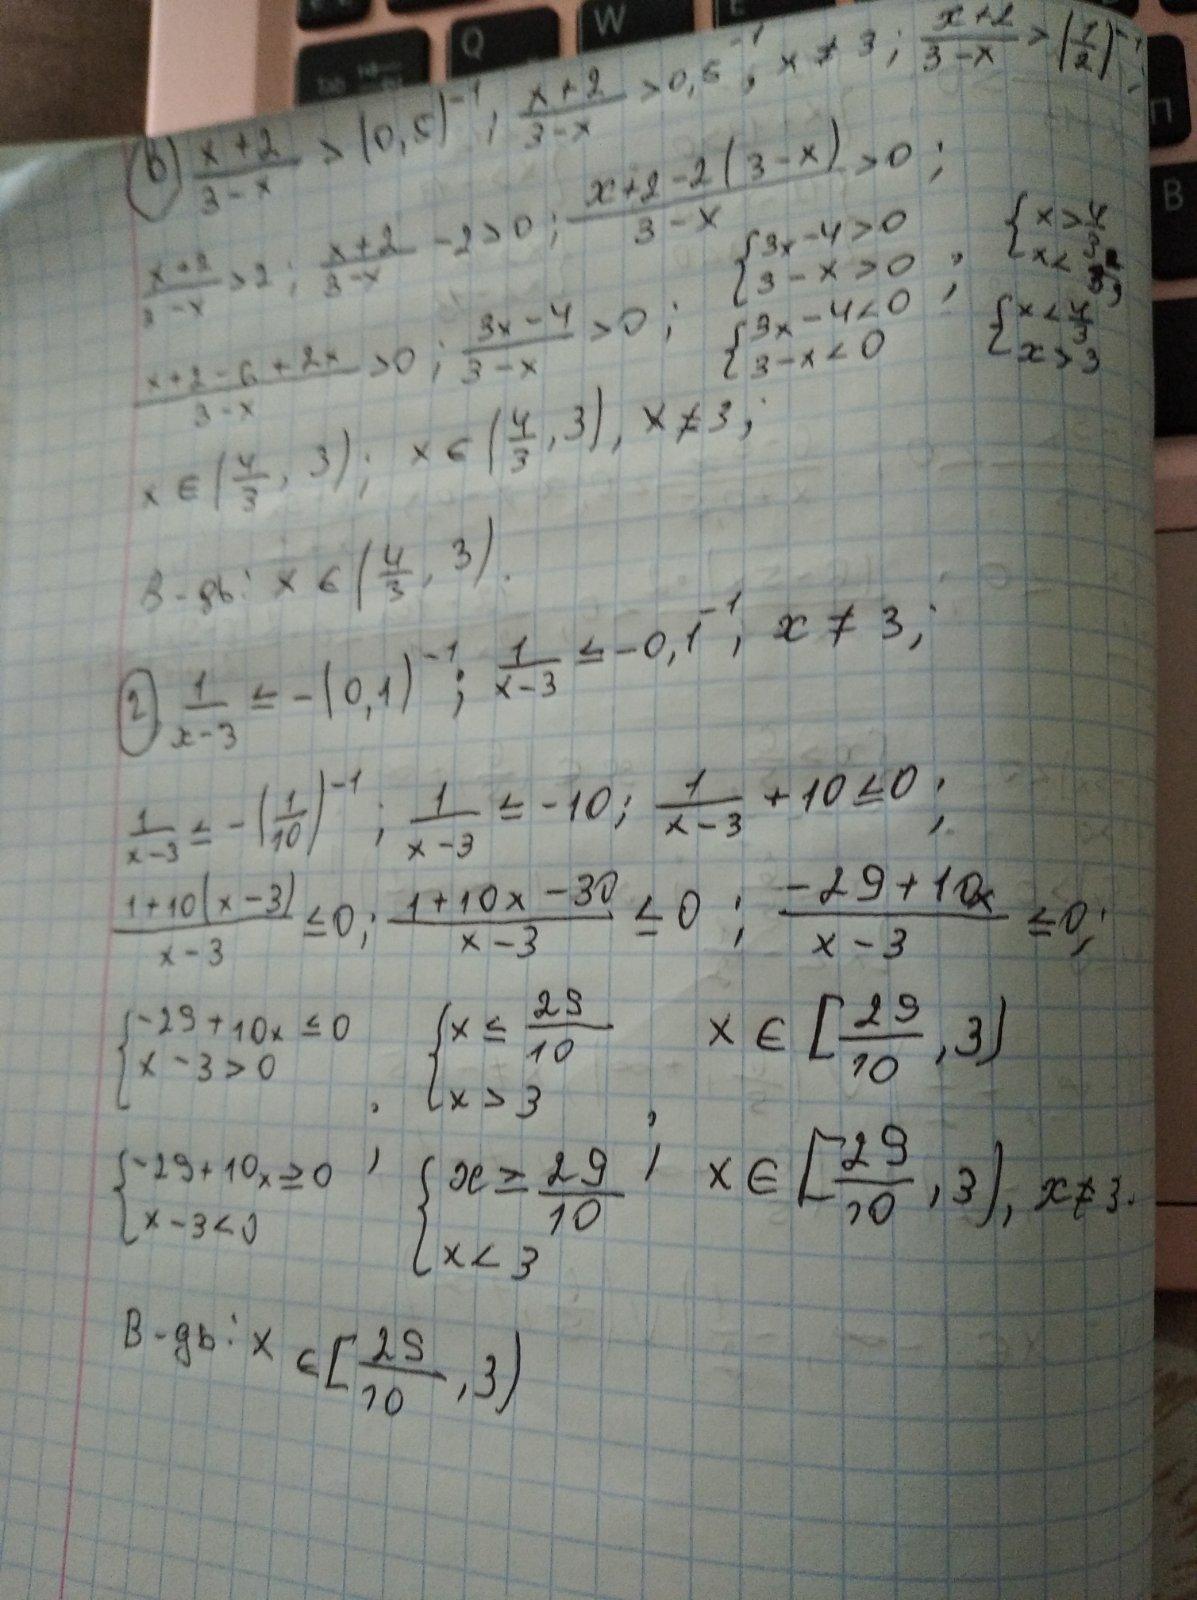 Q W E
П
В
в) \frac{x+2}{3-x} > (0,5)^{-1}; \frac{x+2}{3-x} > 0,5^{-1}, x ≠ 3; \frac{x+2}{3-x} > (\frac{1}{2})^{-1};
\frac{x+2}{3-x} > 2; \frac{x+2}{3-x} - 2 > 0; \frac{x+2-2(3-x)}{3-x} > 0;
\frac{x+2-6+2x}{3-x} > 0; \frac{3x-4}{3-x} > 0; { 3x-4>0 3-x>0 , { x>\frac{4}{3} x<3
{ 3x-4<0 3-x<0 ; { x<\frac{4}{3} x>3
x ∈ (\frac{4}{3}, 3); x ∈ (\frac{4}{3}, 3), x ≠ 3;
В-дь: x ∈ (\frac{4}{3}, 3).
2) \frac{1}{x-3} ≤ -(0,1)^{-1}; \frac{1}{x-3} ≤ -0,1^{-1}; x ≠ 3;
\frac{1}{x-3} ≤ -(\frac{1}{10})^{-1}; \frac{1}{x-3} ≤ -10; \frac{1}{x-3} + 10 ≤ 0;
\frac{1+10(x-3)}{x-3} ≤ 0; \frac{1+10x-30}{x-3} ≤ 0; \frac{-29+10x}{x-3} ≤ 0;
{ -29+10x ≤ 0 x-3>0 , { x ≤ \frac{29}{10} x>3 , x ∈ [\frac{29}{10}, 3)
{ -29+10x ≥ 0 x-3<0 ; { x ≥ \frac{29}{10} x<3 ; x ∈ [\frac{29}{10}, 3), x ≠ 3.
В-дь: x ∈ [\frac{29}{10}, 3)